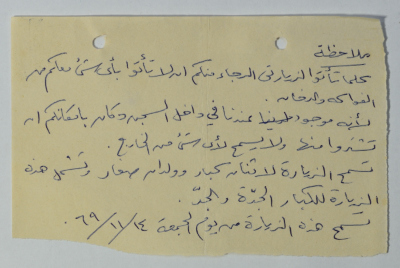 ملاحظة
كلما تأتوا لزيارتي الرجاء منكم ان لا تأتوا بأي شئ معكم من
الفواكه والدخان.
لأنه موجود طبيعيا عندنا في داخل السجن دكان بامكانكم ان
تشتروا منها ولا يسمح لأي شئ من الخارج.
تسمح الزيارة لاثنان كبار وولدان صغار وتشمل هذه
الزيارة للكبار الجدّة والجدّ.
تسمح هذه الزيارة من يوم الجمعة ٦٩/١١/١٤.